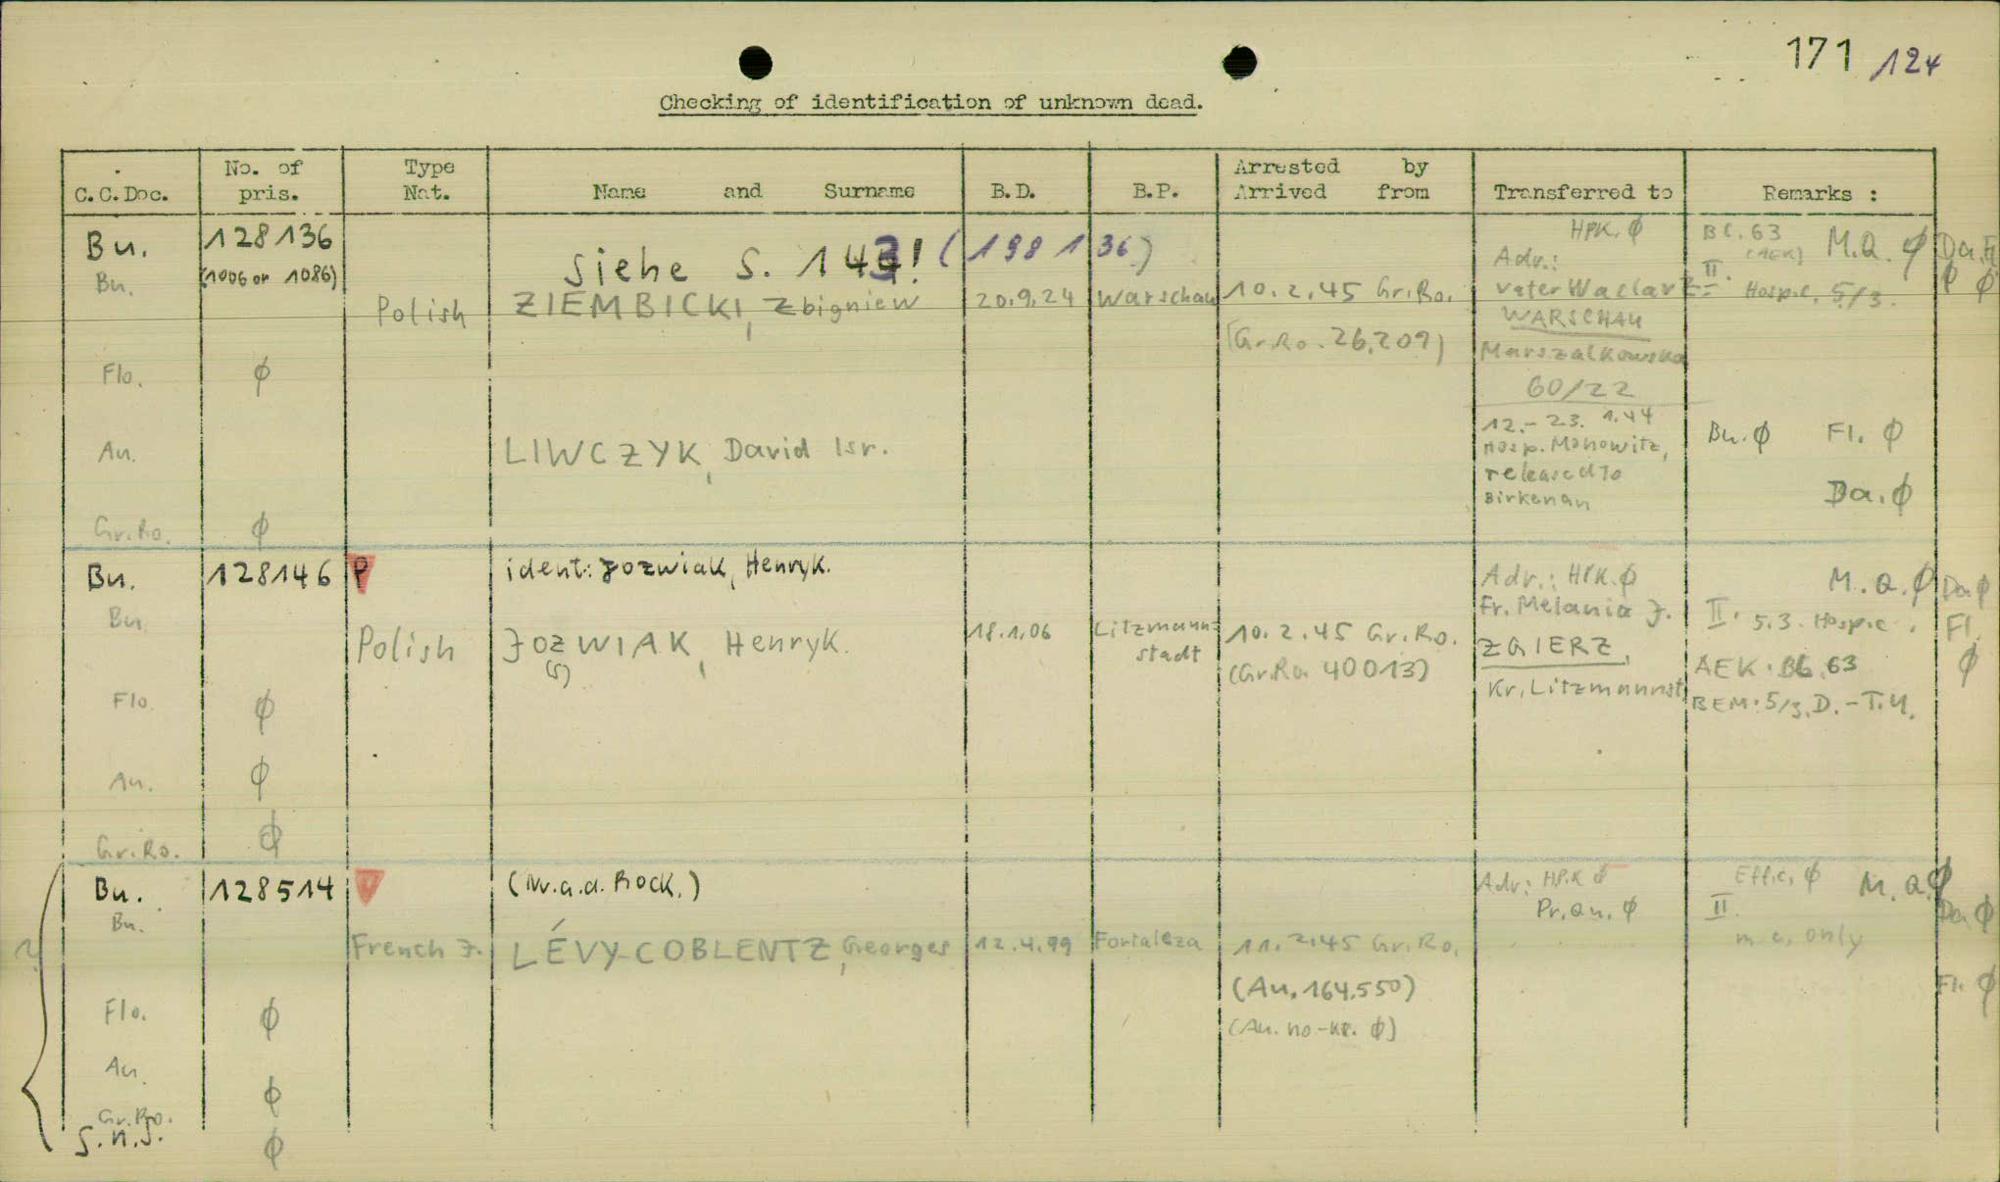 171 124
Checking of identification of unknown dead.
C.C.Doc. No. of pris. Type Nat. Name and Surname B.D. B.P. Arrested by Arrived from Transferred to Remarks :
Bu. 128136 Siehe S. 143! (198136) HPK. ϕ Bl. 63 M.Q. ϕ Da. Fl.
Bu. (1006 or 1086) Adv.: II. ϕ ϕ
Polish ZIEMBICKI, Zbigniew 20.9.24 Warschau 10.2.45 Gr.Ro. Vater Waclav Z= Hospic. 5/3.
(Gr.Ro. 26.209) WARSCHAU
Marszalkowska
Flo. ϕ 60/22
12.- 23. 1.44
An. LIWCZYK, David Isr. Hosp. Monowitz, Bu. ϕ Fl. ϕ
released to
Birkenau Da. ϕ
Gr.Ro. ϕ
Bu. 128146 P ident: Jozwiak, Henryk. Adv.: HPK. ϕ M.Q. ϕ Da ϕ
Bu. Fr. Melania J. II. 5.3. Hospic. Fl.
Polish JOZWIAK, Henryk. 18.1.06 Litzmann= 10.2.45 Gr.Ro. ZGIERZ,
(S) stadt (Gr.Ro. 40013) Kr. Litzmannst AEK. Bl. 63 ϕ
Flo. ϕ BEM. 5/3. D.-T.U.
An. ϕ
Gr.Ro. ϕ
Bu. 128514 (Nr.a.d. Rock.) Adv: HPK ϕ Effec. ϕ M.Q. ϕ
Bu. Pr.Qu. ϕ II. Da ϕ
? French J. LÉVY-COBLENTZ, Georges 12.4.99 Fortaleza 11.2.45 Gr.Ro. m.c. only
(Au. 164.550) Fl. ϕ
Flo. ϕ (Au. no-kr. ϕ)
Au. ϕ
Gr.Ro.
S.n.J. ϕ